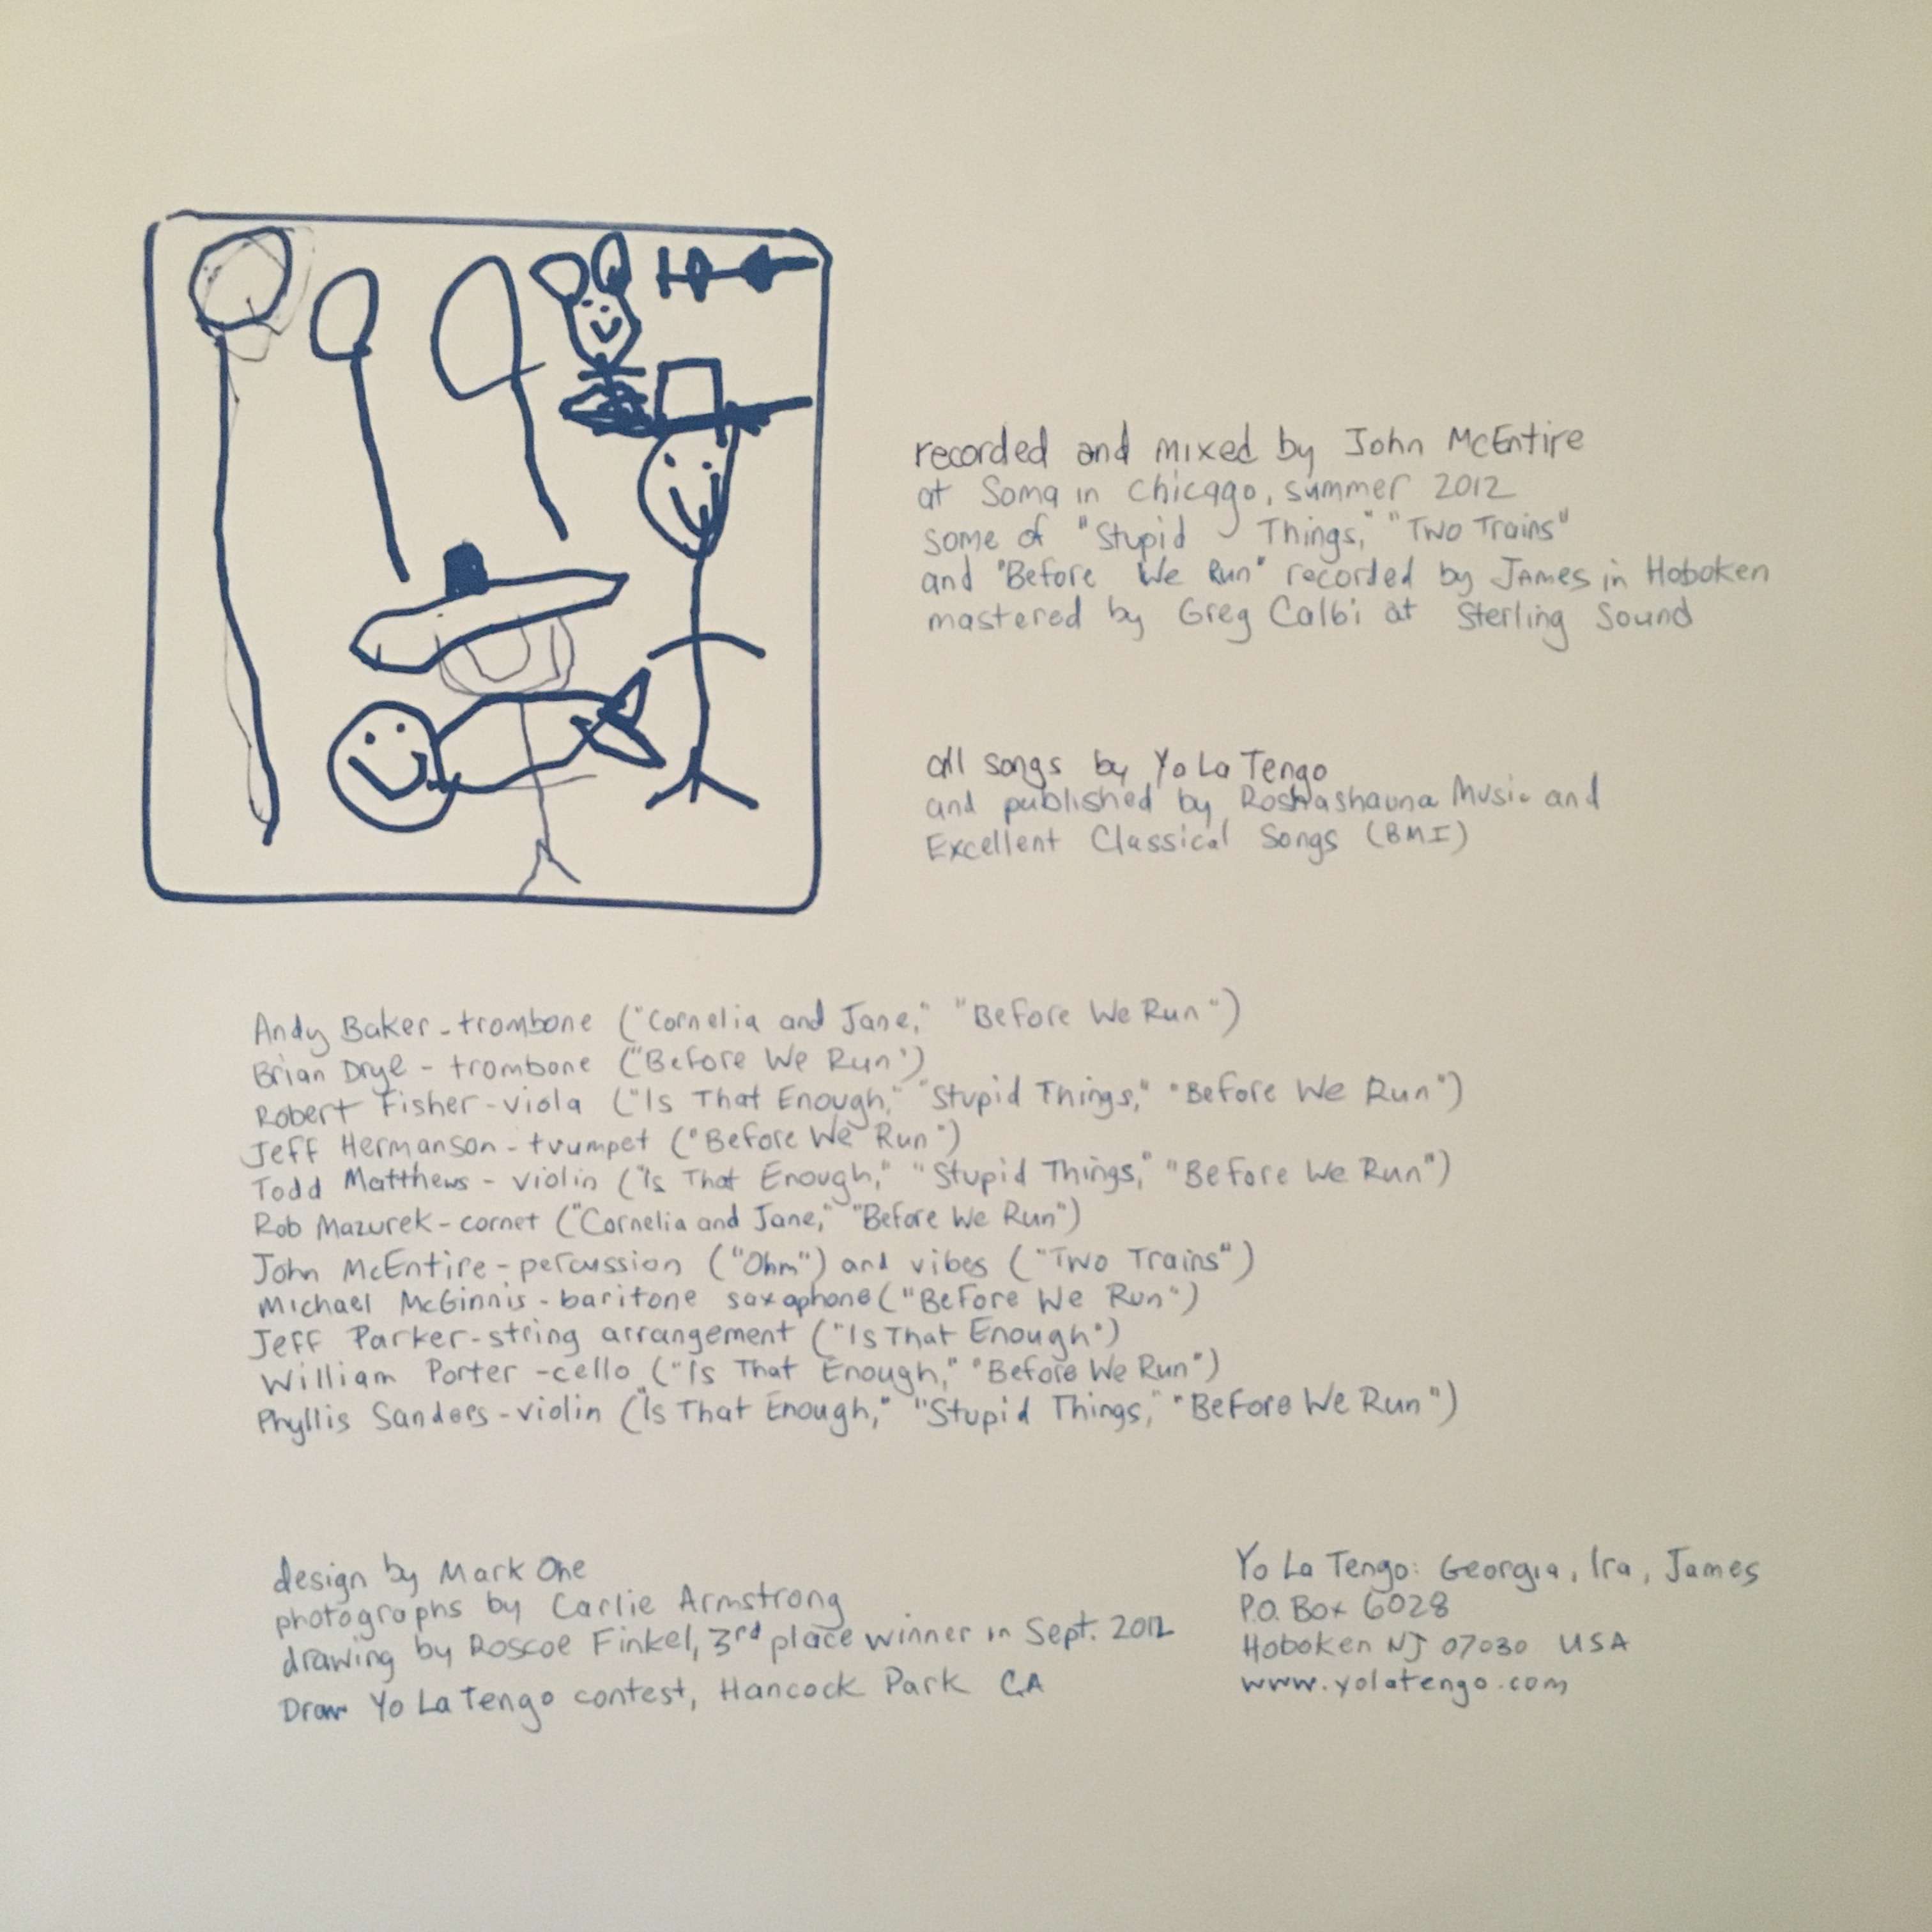 recorded and mixed by John McEntire
at Soma in Chicago, summer 2012
some of "Stupid Things," "Two Trains"
and "Before We Run" recorded by James in Hoboken
mastered by Greg Calbi at Sterling Sound
all songs by Yo La Tengo
and published by Roshashauna Music and
Excellent Classical Songs (BMI)
Andy Baker - trombone ("Cornelia and Jane," "Before We Run")
Brian Drye - trombone ("Before We Run")
Robert Fisher - viola ("Is That Enough," "Stupid Things," "Before We Run")
Jeff Hermanson - trumpet ("Before We Run")
Todd Matthews - violin ("Is That Enough," "Stupid Things," "Before We Run")
Rob Mazurek - cornet ("Cornelia and Jane," "Before We Run")
John McEntire - percussion ("Ohm") and vibes ("Two Trains")
Michael McGinnis - baritone saxophone ("Before We Run")
Jeff Parker - string arrangement ("Is That Enough")
William Porter - cello ("Is That Enough," "Before We Run")
Phyllis Sanders - violin ("Is That Enough," "Stupid Things," "Before We Run")
design by Mark One
photographs by Carlie Armstrong
drawing by Roscoe Finkel, 3rd place winner in Sept. 2012
Draw Yo La Tengo contest, Hancock Park CA
Yo La Tengo: Georgia, Ira, James
P.O. Box 6028
Hoboken NJ 07030 USA
www.yolatengo.com